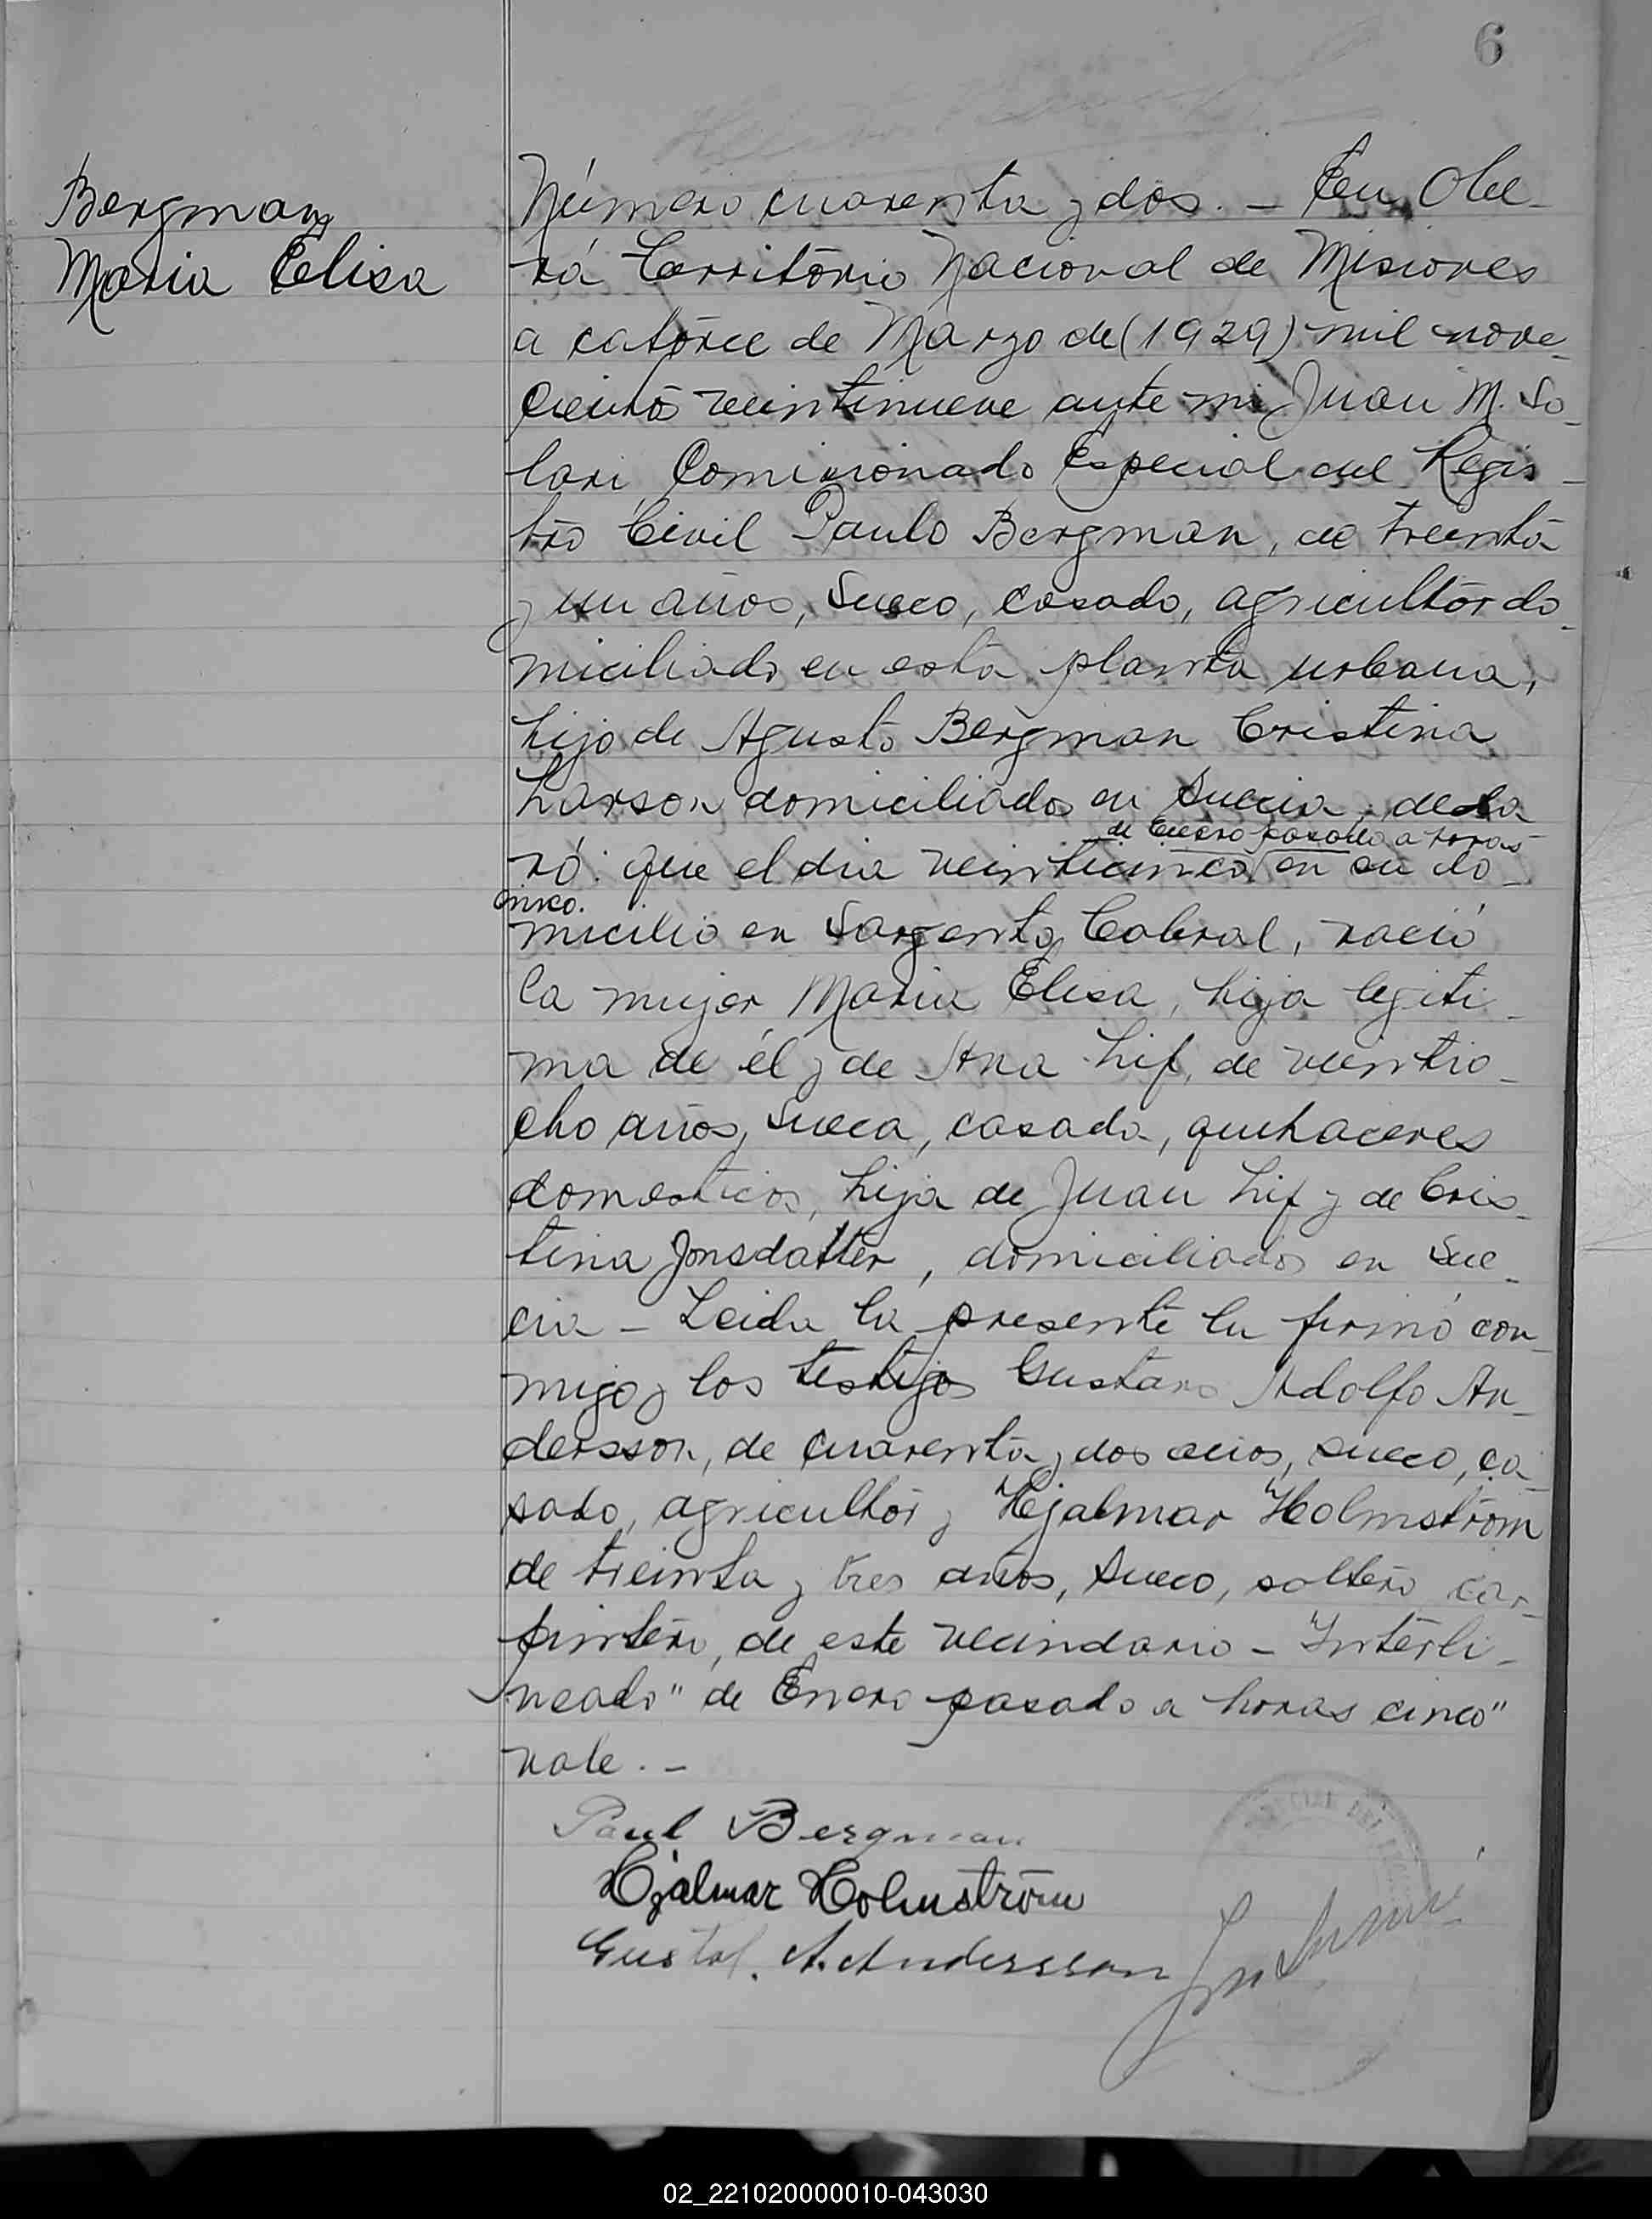 6
Bergman
Maria Elisa
Número cuarenta y dos. - En Obe-
rá Territorio Nacional de Misiones
a catorce de Marzo de (1929) mil nove-
cientos veintinueve ante mi Juan M. So-
lari Comisionado Especial del Regis-
tro Civil Paulo Bergman, de treinta
y un años, Sueco, casado, agricultor do-
miciliado en esta planta urbana,
hijo de Agusto Bergman Cristina
Larson domiciliados en Suecia, decla
de Enero pasado a horas
ró: que el dia veinticinco en su do-
cinco.
micilio en Sargento Cabral, nació
la mujer Maria Elisa, hija legiti-
ma de él y de Ana Lif, de veintio-
cho años, Sueca, casada, quehaceres
domesticos, hija de Juan Lif y de Cris-
tina Jonsdatter, domiciliados en Sue-
cia - Leida la presente la firmó con-
migo y los testigos Gustavo Adolfo An-
dersson, de cuarenta y dos años, sueco, ca-
sado, agricultor y Hjalmar Holmström
de treinta y tres años, Sueco, soltero car-
pintero, de este vecindario - Interli-
neado "de Enero pasado a horas cinco"
vale. -
Paul Bergman
Hjalmar Holmström
Gustaf. A. Andersson
02_221020000010-043030